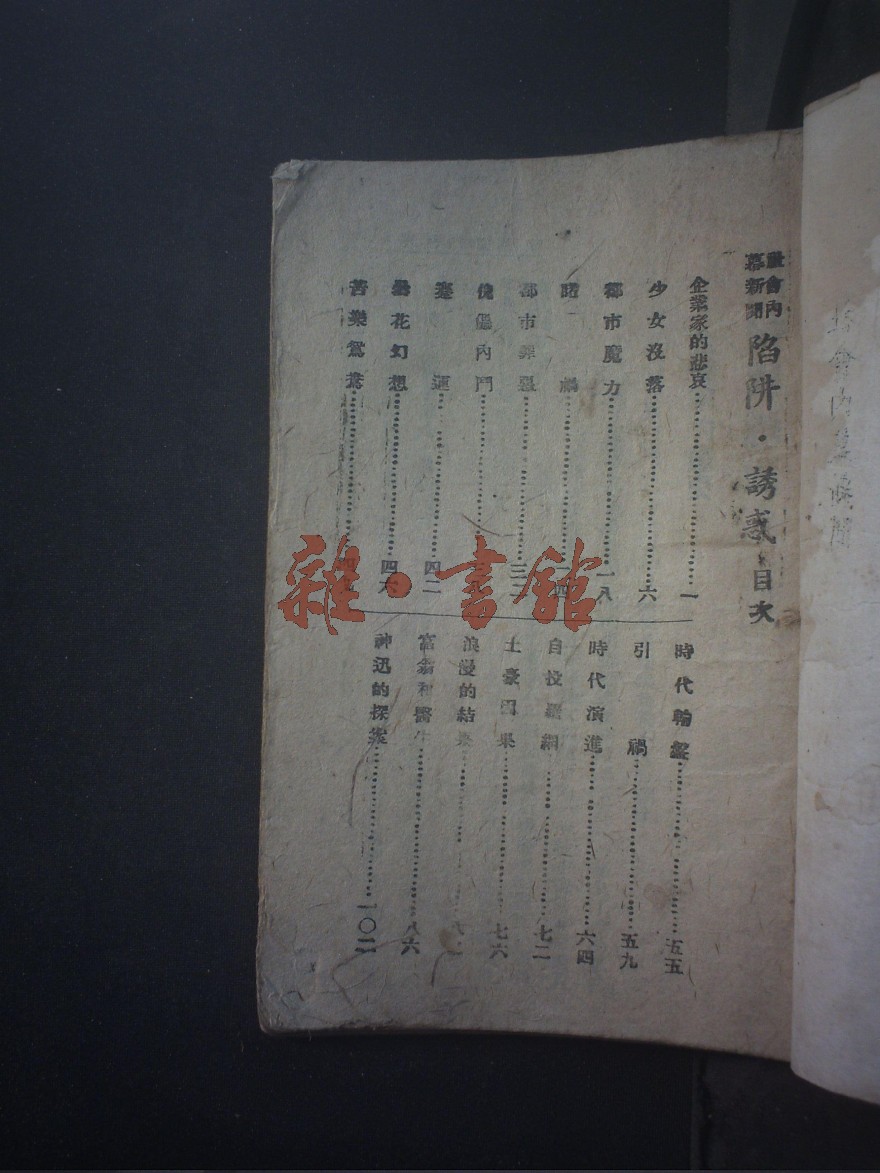 社會內幕新聞 陷阱·誘惑 目次
企業家的悲哀 一
少女沒落 六
都市魔力 一八
賭禍
都市罪惡 三二
傀儡內鬥
蹇運 四二
曇花幻想 四六
苦樂鴛鴦
時代輪盤 五五
引禍 五九
時代演進 六四
自投羅網 七二
土豪因果 七六
浪漫的結果
富翁和醫生 八六
神迅的探案 一〇二
雜·書館